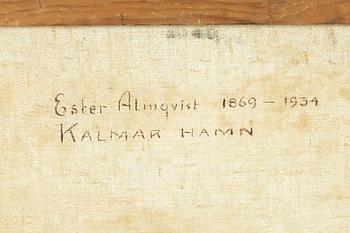 Ester Almqvist 1869 - 1934
KALMAR HAMN